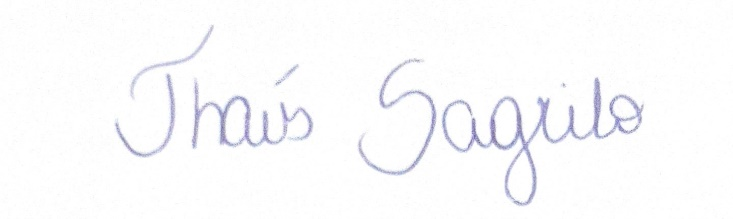 Thaís Sagrilo